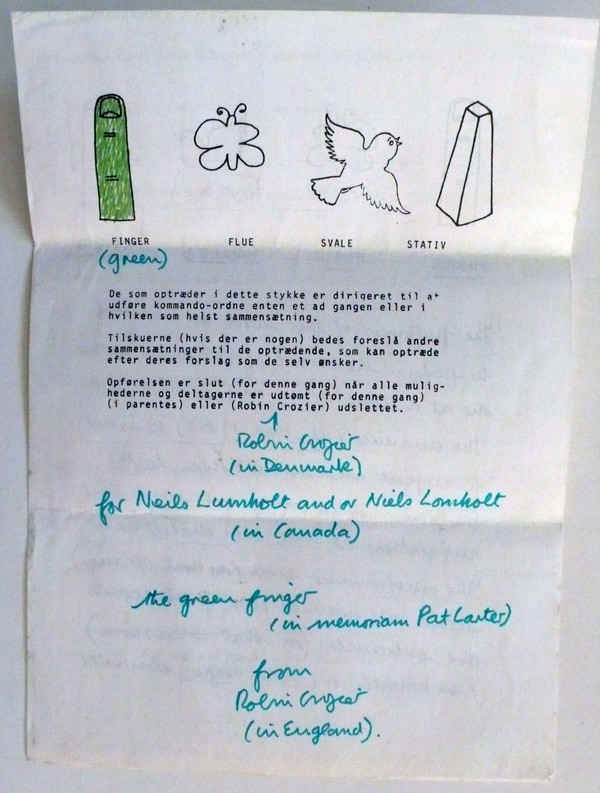 FINGER FLUE SVALE STATIV
(green)
De som optræder i dette stykke er dirigeret til at
udføre kommando-ordne enten et ad gangen eller i
hvilken som helst sammensætning.
Tilskuerne (hvis der er nogen) bedes foreslå andre
sammensætninger til de optrædende, som kan optræde
efter deres forslag som de selv ønsker.
Opførelsen er slut (for denne gang) når alle mulig-
hederne og deltagerne er udtømt (for denne gang)
(i parentes) eller (Robin Crozier) udslettet.
Robin Crozier
(in Denmark)
for Neils Lumholt and or Niels Lomholt
(in Canada)
the green finger
(in memoriam Pat Larter)
from
Robin Crozier
(in England).